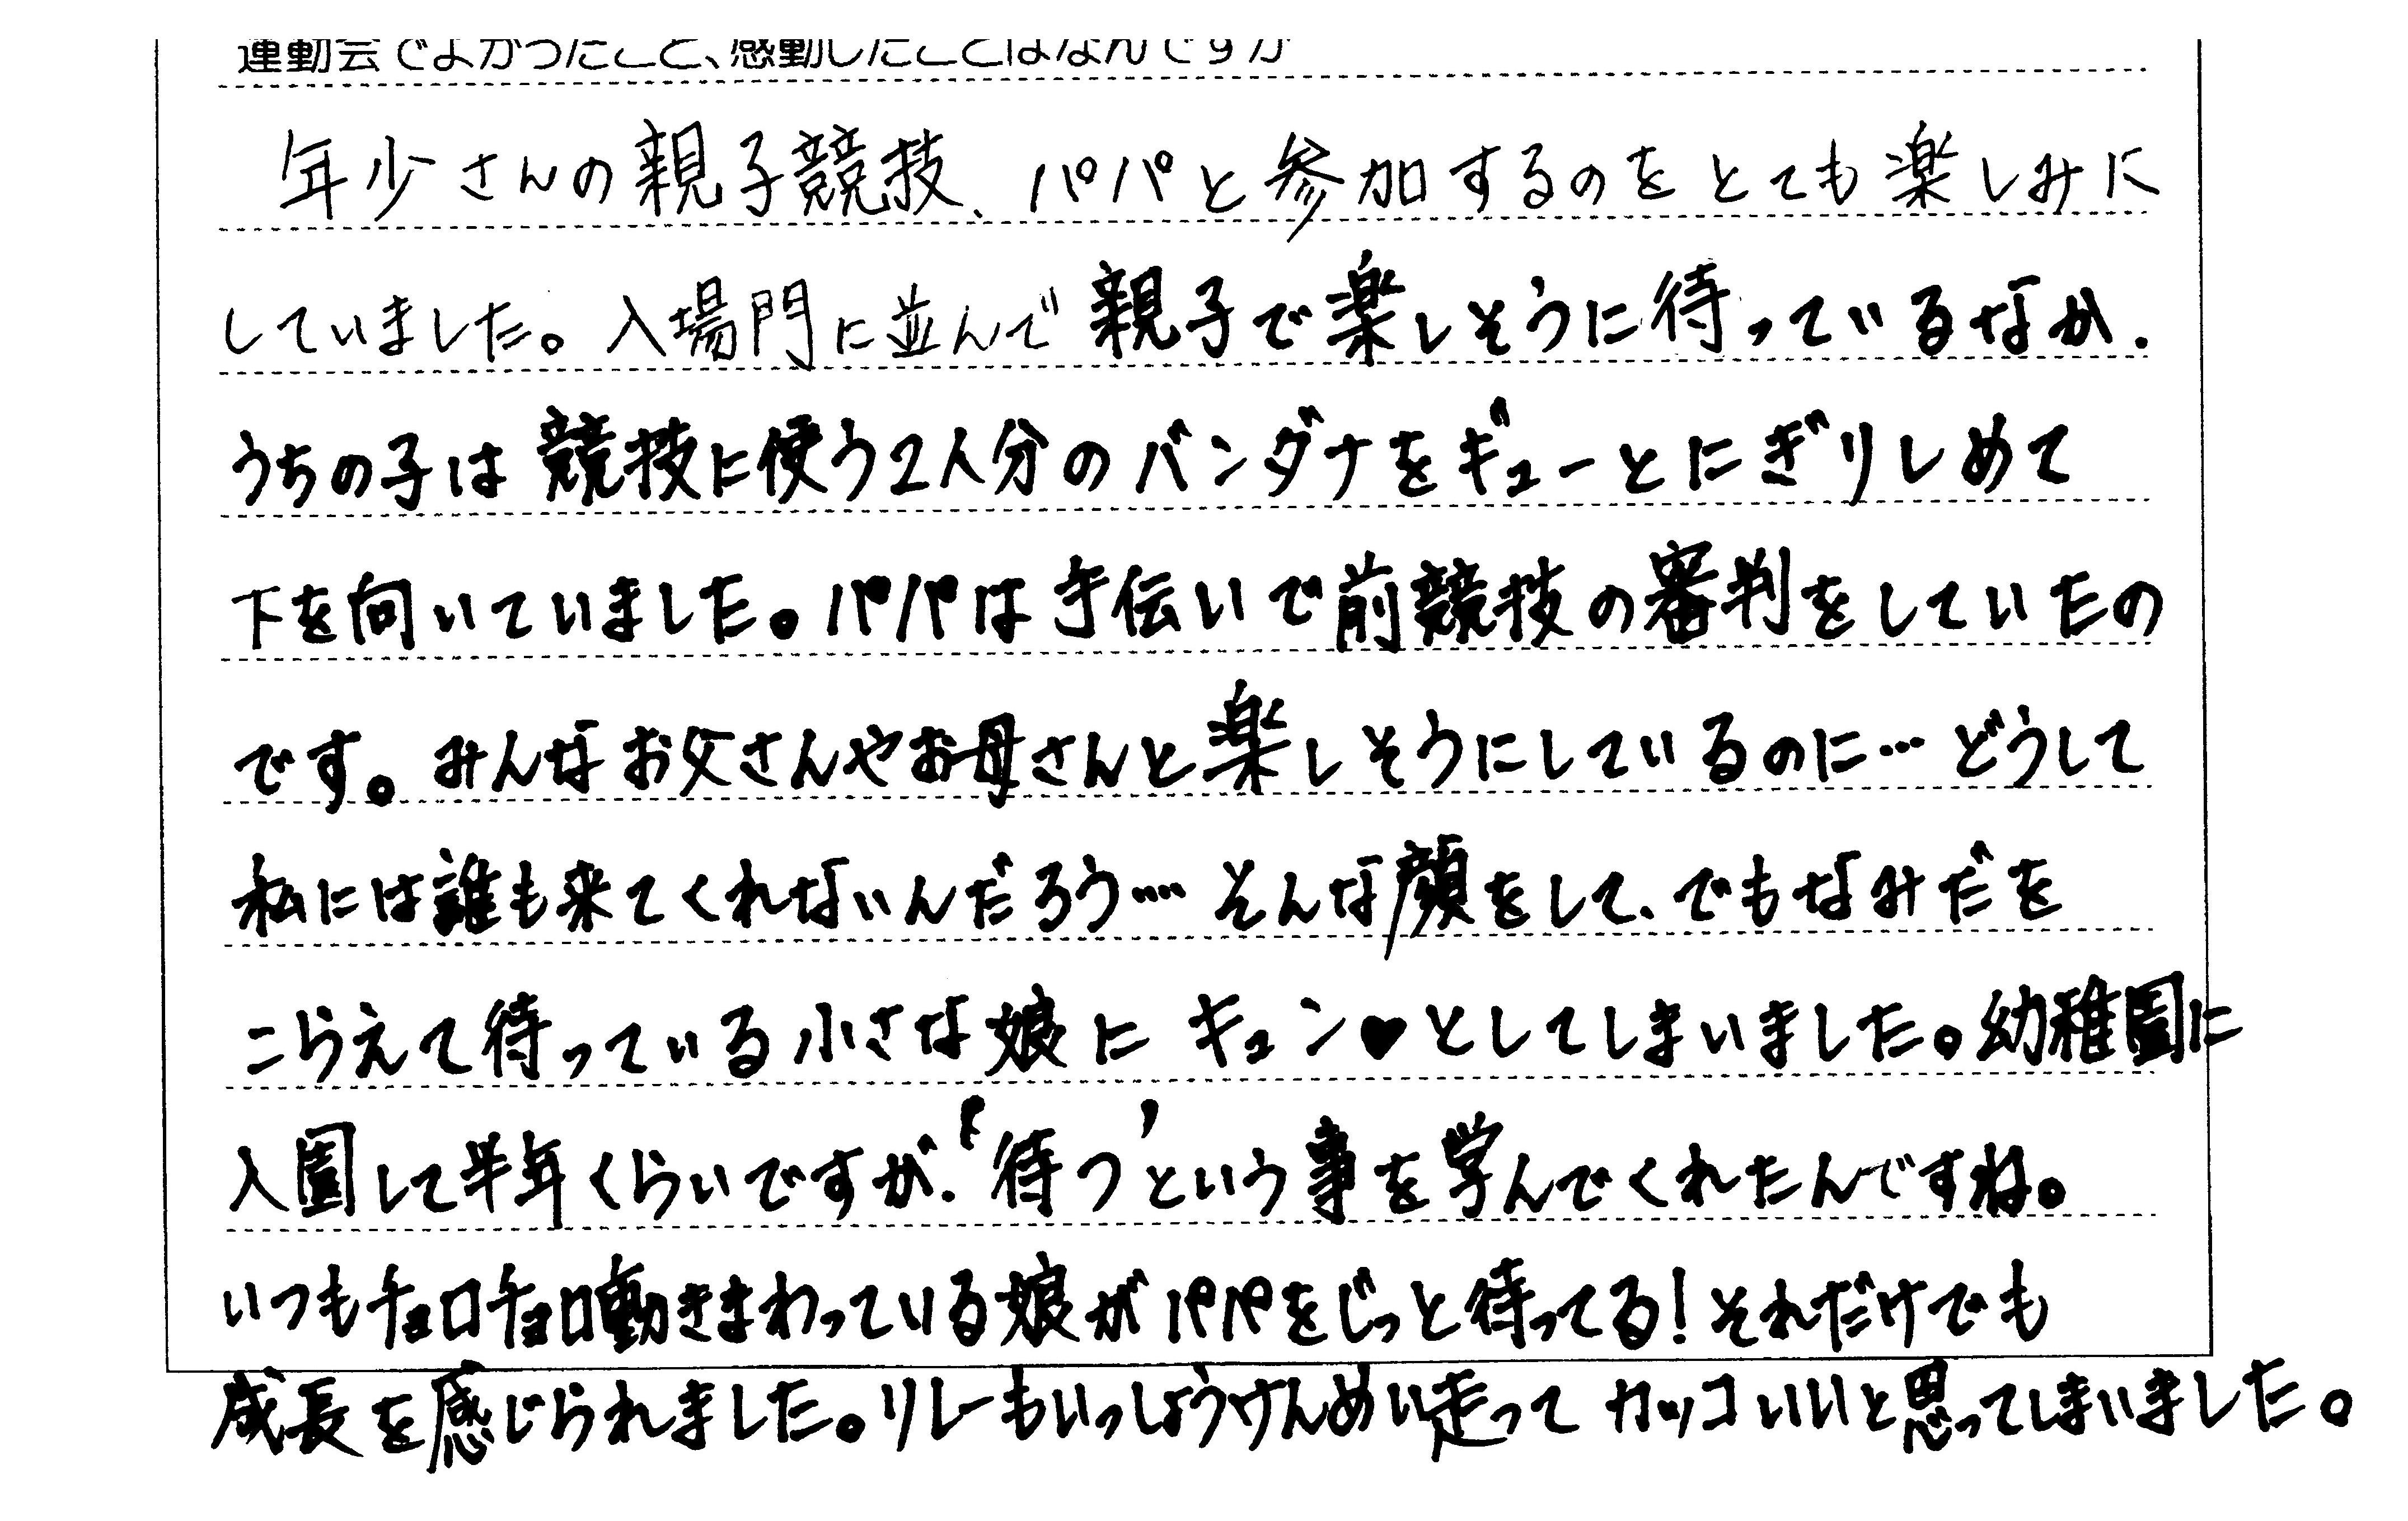 運動会でよかったこと、感動したことはなんですか
年少さんの親子競技、パパと参加するのをとても楽しみに
していました。入場門に並んで親子で楽しそうに待っているなか、
うちの子は競技に使う2人分のバンダナをギューとにぎりしめて
下を向いていました。パパは手伝いで前競技の審判をしていたの
です。みんなお父さんやお母さんと楽しそうにしているのに…どうして
私には誰も来てくれないんだろう…. そんな顔をして、でもなみだを
こらえて待っている小さな娘にキュン♥としてしまいました。幼稚園に
入園して半年くらいですが、“待つ”という事を学んでくれたんですね。
いつもチョロチョロ動きまわっている娘がパパをじっと待ってる！それだけでも
成長を感じられました。リレーもいっしょうけんめい走ってカッコいいと思ってしまいました。